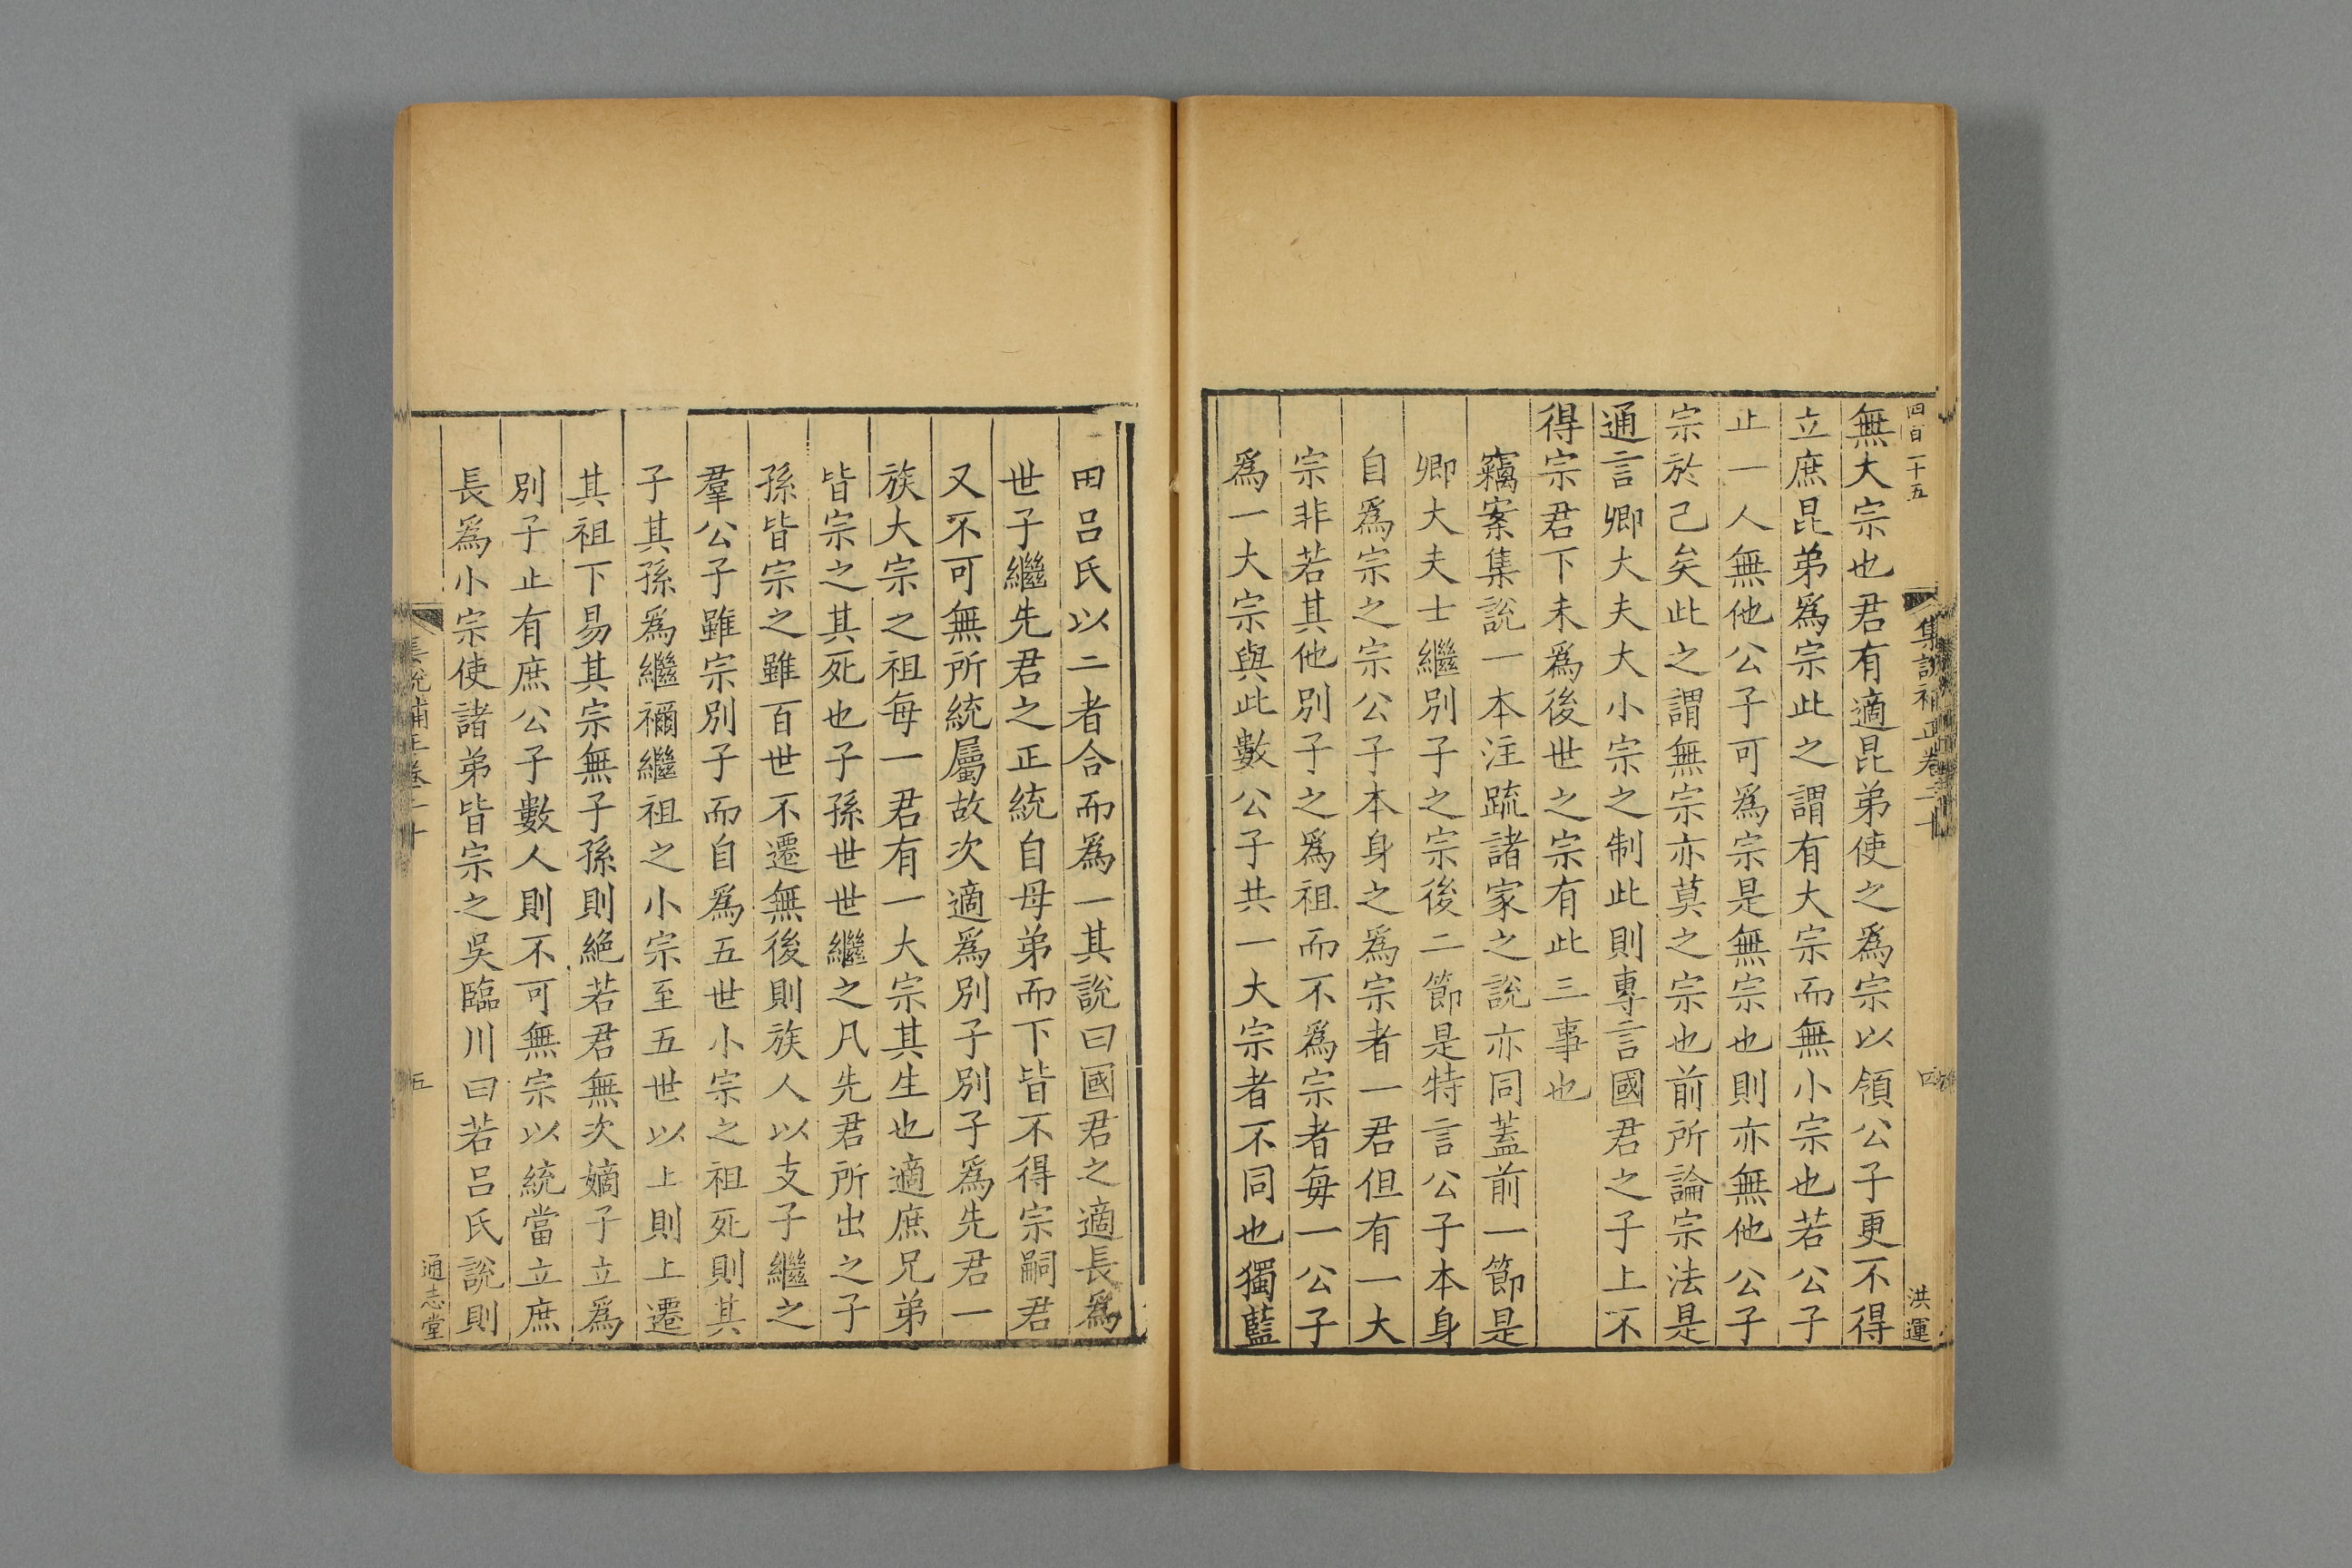 四百二十五
集說補正卷二十
四
洪運
無大宗也君有適昆弟使之爲宗以領公子更不得
立庶昆弟爲宗此之謂有大宗而無小宗也若公子
止一人無他公子可爲宗是無宗也則亦無他公子
宗於己矣此之謂無宗亦莫之宗也前所論宗法是
通言卿大夫大小宗之制此則專言國君之子上不
得宗君下未爲後世之宗有此三事也
竊案集說一本注疏諸家之說亦同蓋前一節是
卿大夫士繼別子之宗後二節是特言公子本身
自爲宗之宗公子本身之爲宗者一君但有一大
宗非若其他別子之爲祖而不爲宗者每一公子
爲一大宗與此數公子共一大宗者不同也獨藍
田呂氏以二者合而爲一其說曰國君之適長爲
世子繼先君之正統自母弟而下皆不得宗嗣君
又不可無所統屬故次適爲別子別子爲先君一
族大宗之祖每一君有一大宗其生也適庶兄弟
皆宗之其死也子孫世世繼之凡先君所出之子
孫皆宗之雖百世不遷無後則族人以支子繼之
羣公子雖宗別子而自爲五世小宗之祖死則其
子其孫爲繼禰繼祖之小宗至五世以上則上遷
其祖下易其宗無子孫則絕若君無次嫡子立爲
別子止有庶公子數人則不可無宗以統當立庶
長爲小宗使諸弟皆宗之吳臨川曰若呂氏說則
集說補正卷二十
五
通志堂